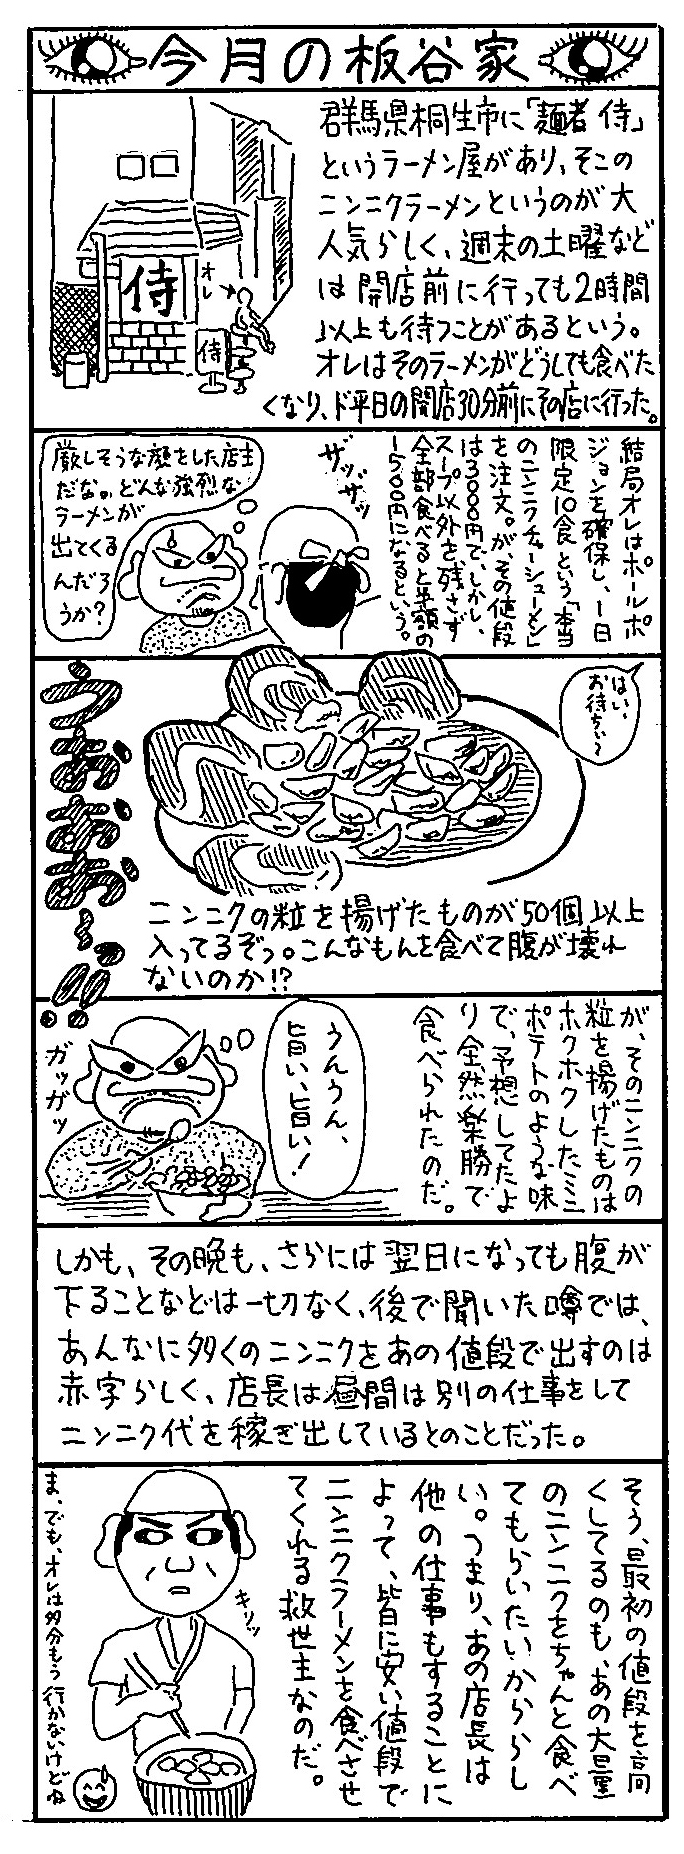 今月の板谷家
群馬県桐生市に「麺者 侍」
というラーメン屋があり、そこの
ニンニクラーメンというのが大
人気らしく、週末の土曜など
は開店前に行っても2時間
以上も待つことがあるという。
オレはそのラーメンがどうしても食べた
くなり、ド平日の開店30分前にその店に行った。
侍
オレ
侍
結局オレはポールポ
ジションを確保し、一日
限定10食という「本当
のニンニクチャーシューメン」
を注文。が、その値段
は3000円で、しかし、
スープ以外を残さず
全部食べると半額の
1500円になるという。
ザッザッザッ
厳しそうな顔をした店主
だな。どんな強烈な
ラーメンが
出てくる
んだろ
うか?
はい、
お待ちぃ〜
うおおお〜!!
ニンニクの粒を揚げたものが50個以上
入ってるぞっ。こんなもんを食べて腹が壊れ
ないのか!?
が、そのニンニクの
粒を揚げたものは
ホクホクしたミニ
ポテトのような味
で、予想してたよ
り全然楽勝で
食べられたのだ。
うんうん、
旨い、旨い!
ガッガッガッ
しかも、その晩も、さらには翌日になっても腹が
下ることなどは一切なく、後で聞いた噂では、
あんなに多くのニンニクをあの値段で出すのは
赤字らしく、店長は昼間は別の仕事をして
ニンニク代を稼ぎ出しているとのことだった。
そう、最初の値段を高
くしてるのも、あの大量
のニンニクをちゃんと食べ
てもらいたいかららし
い。つまり、あの店長は
他の仕事もすることに
よって、皆に安い値段で
ニンニクラーメンを食べさせ
てくれる救世主なのだ。
キリッ
ま、でも、オレは多分もう行かないけどね